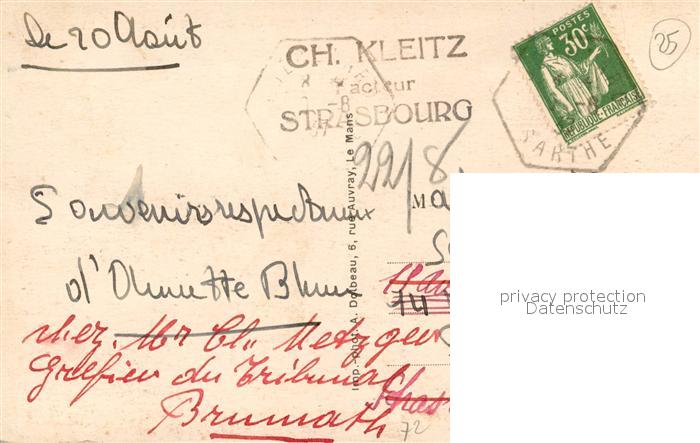 Le 20 Août
CH. KLEITZ
Facteur
STRASBOURG
POSTES
30c
REPUBLIQUE FRANÇAISE
SARTHE
25
22/8
Souvenirs respectueux
d'Annette Blum
chez Mr Ch. Metzger
Greffier du Tribunal
Brumath
Imp.-Phot. A. Dolbeau, 6, rue Auvray, Le Mans
M
14
72
privacy protection
Datenschutz